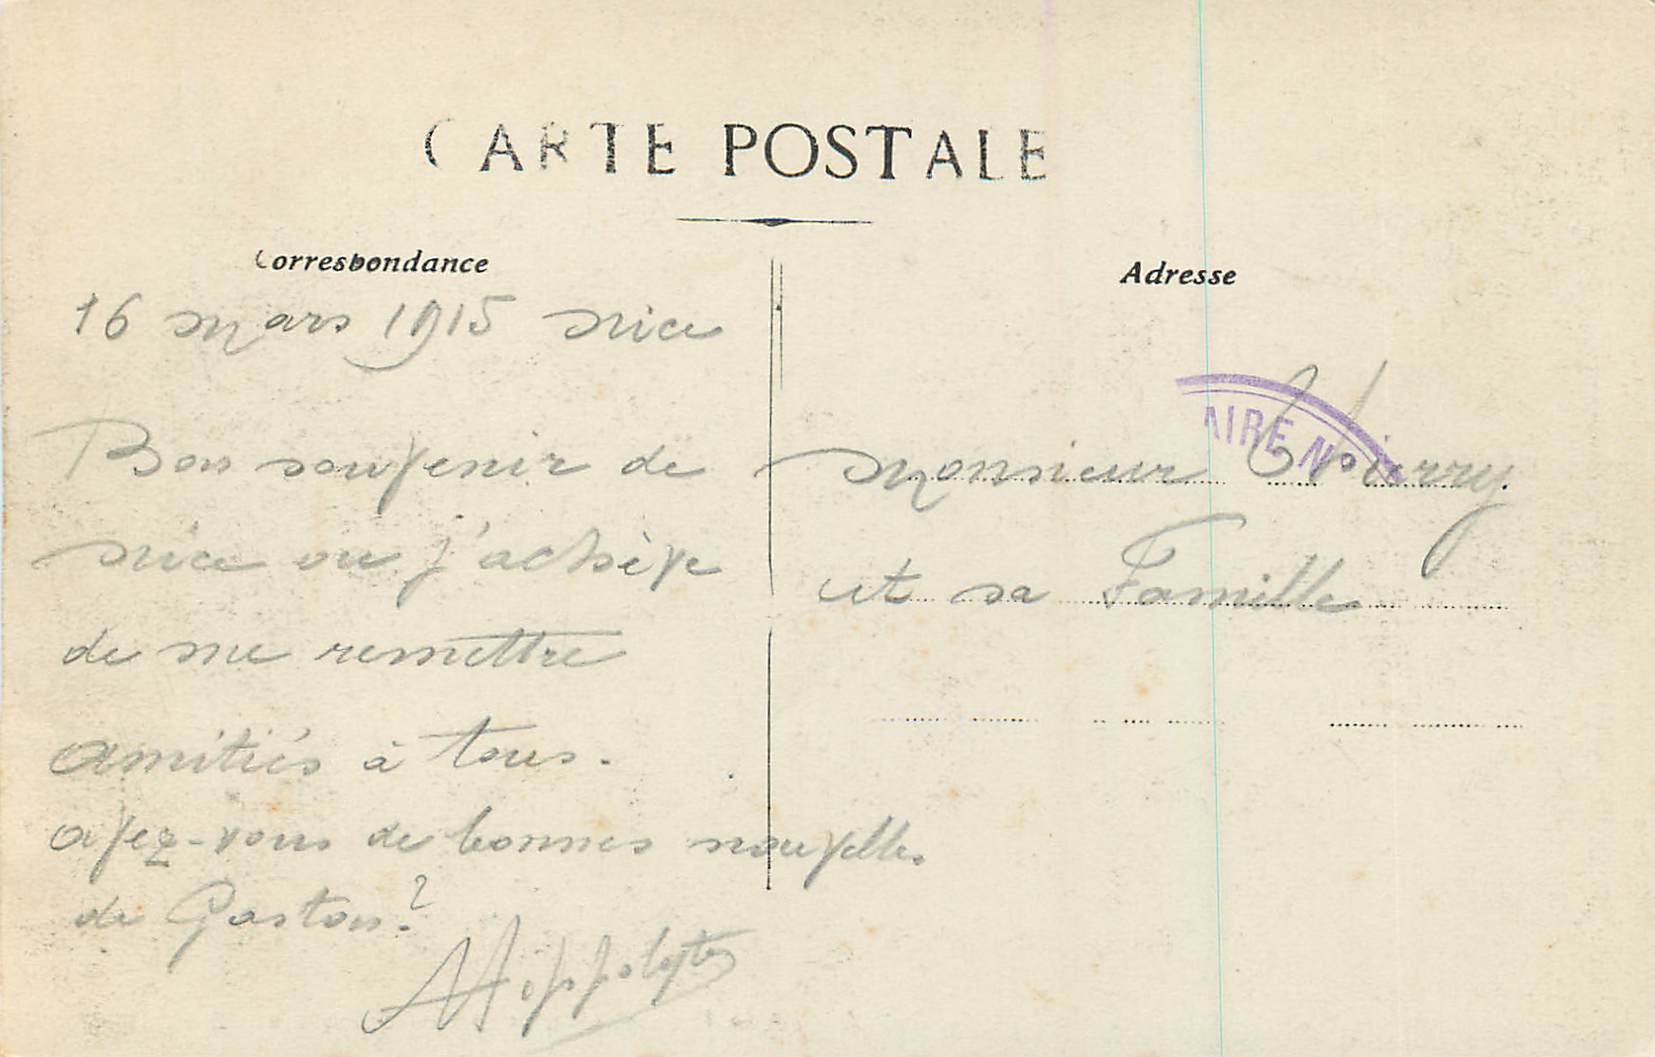 CARTE POSTALE
Correspondance
Adresse
16 mars 1915 Nice
Bon souvenir de
Nice ou j'achève
de me remettre
amitiés à tous.
avez-vous de bonnes nouvelles
de Gaston?
Hippolyte
AIRE N
Monsieur Thierry
et sa Famille